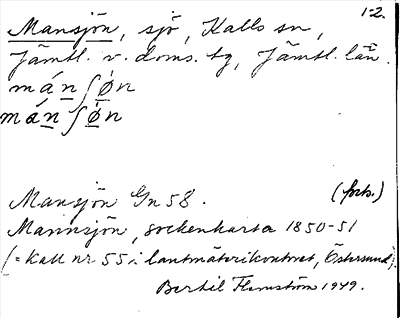 1-2.
Mansjön, sjö, Kalls sn,
Jämtl. v. doms. tg, Jämtl. län.
mánʃøn
mánʃøn
Mansjön Gn 58. (forts.)
Mannsjön, sockenkarta 1850-51
(= Kall nr 55 i lantmäterikontoret, Östersund).
Bertil Flemström 1949.